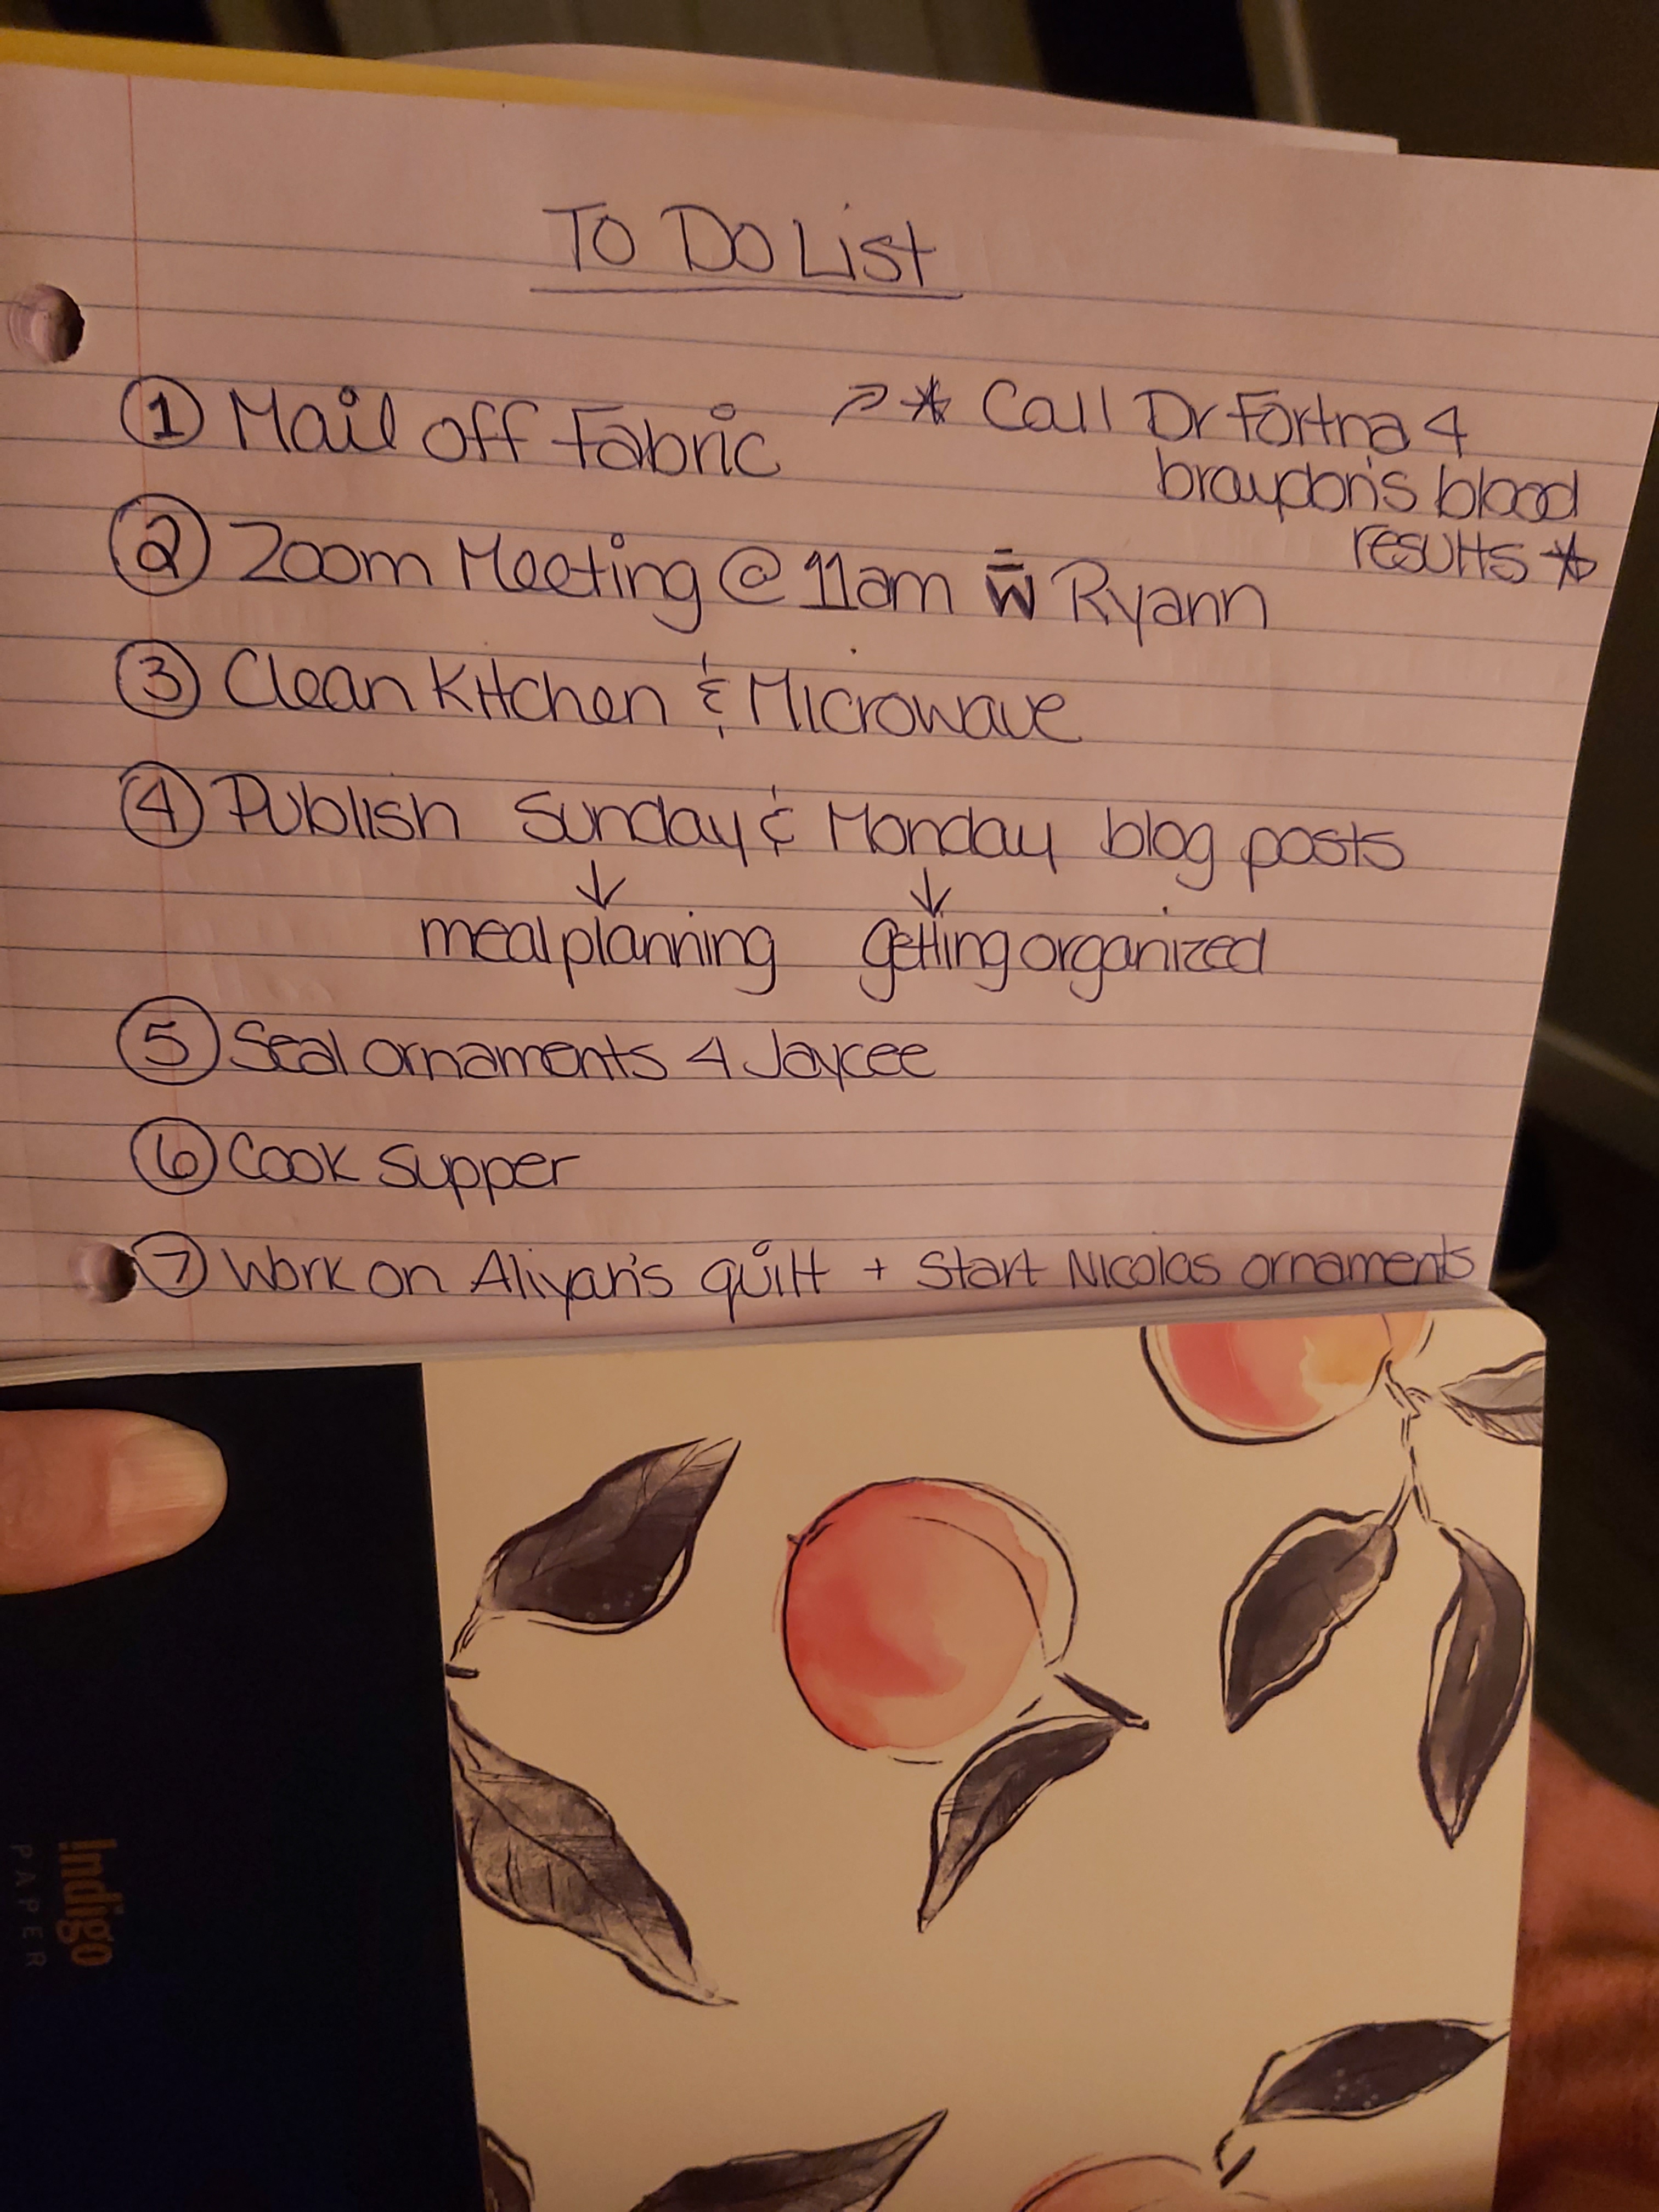 To Do List
① Mail off Fabric ↗ * Call Dr Fortna 4
braydon's blood
results *
② Zoom Meeting @ 11am w̄ Ryann
③ Clean Kitchen & Microwave
④ Publish Sunday & Monday blog posts
↓ ↓
meal planning getting organized
⑤ Seal ornaments 4 Jaycee
⑥ Cook Supper
⑦ Work on Aliyah's quilt + Start Nicolas ornaments
Indigo
PAPER